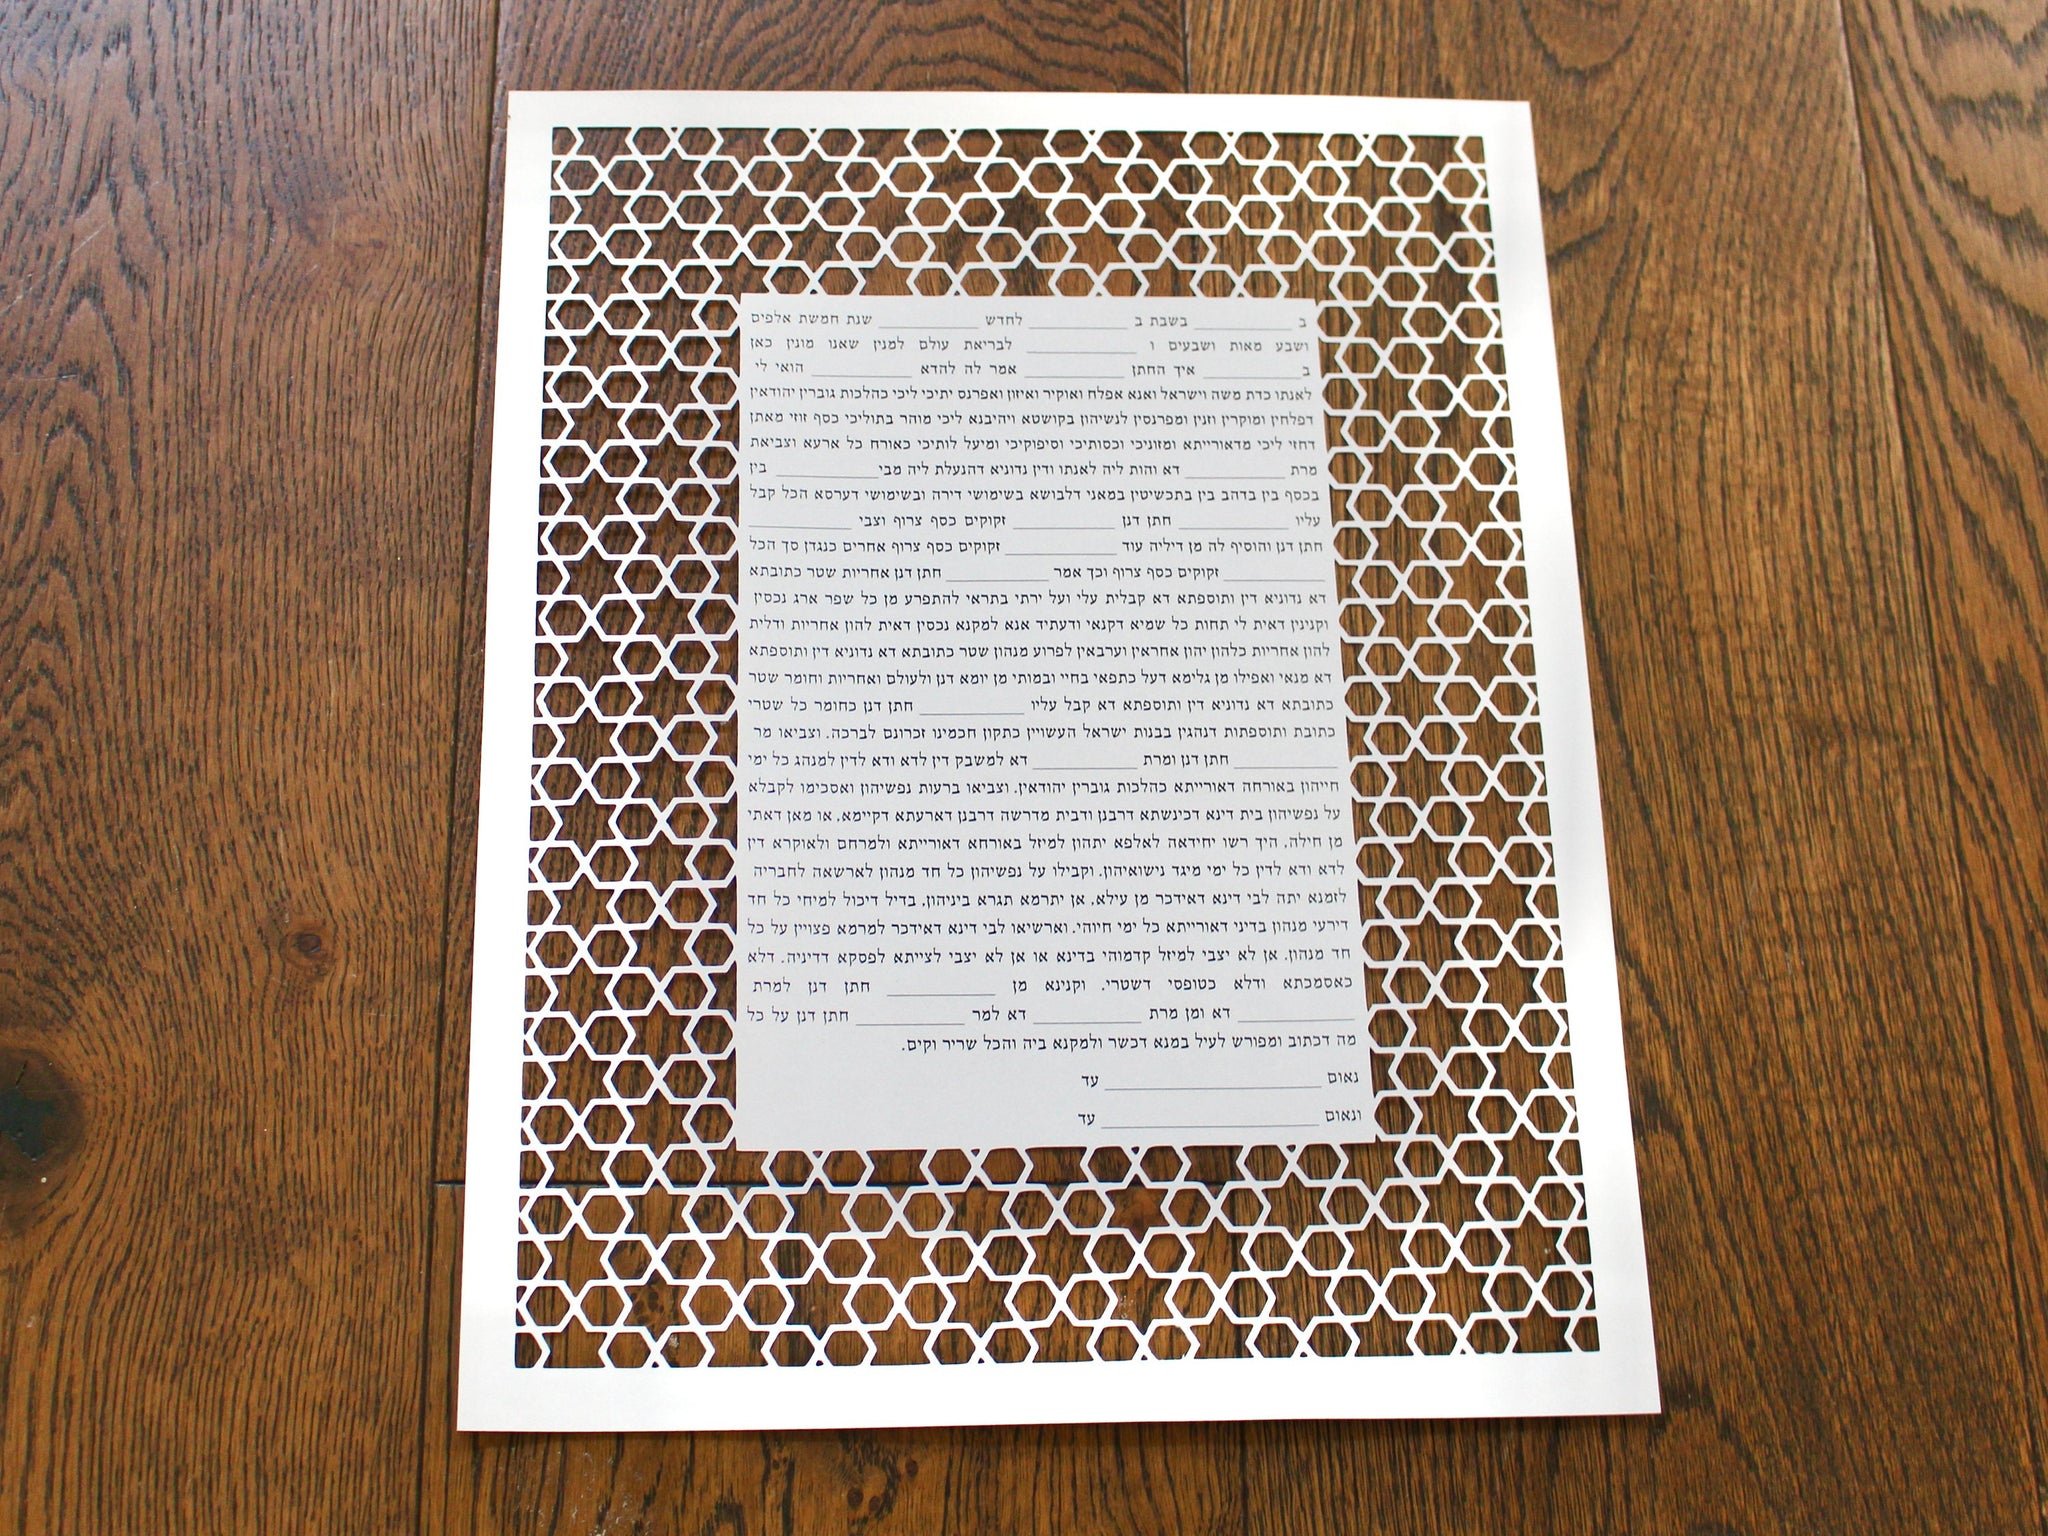 ב ____________ בשבת ב ____________ לחדש ____________ שנת חמשת אלפים
ושבע מאות ושבעים ו ____________ לבריאת עולם למנין שאנו מונין כאן
ב____________ איך החתן ____________ אמר לה להדא ____________ הואי לי
לאנתו כדת משה וישראל ואנא אפלח ואוקיר ואיזון ואפרנס יתיכי ליכי כהלכות גוברין יהודאין
דפלחין ומוקרין וזנין ומפרנסין לנשיהון בקושטא ויהיבנא ליכי מוהר בתוליכי כסף זוזי מאתן
דחזי ליכי מדאורייתא ומזוניכי וכסותיכי וסיפוקיכי ומיעל לותיכי כאורח כל ארעא וצביאת
מרת ____________ דא והות ליה לאנתו ודין נדוניא דהנעלת ליה מבי____________ בין
בכסף בין בדהב בין בתכשיטין במאני דלבושא בשימושי דירה ובשימושי דערסא הכל קבל
עליו ____________ חתן דנן ____________ זקוקים כסף צרוף וצבי ____________
חתן דנן והוסיף לה מן דיליה עוד ____________ זקוקים כסף צרוף אחרים כנגדן סך הכל
____________ זקוקים כסף צרוף וכך אמר ____________ חתן דנן אחריות שטר כתובתא
דא נדוניא דין ותוספתא דא קבלית עלי ועל ירתי בתראי להתפרע מן כל שפר ארג נכסין
וקנינין דאית לי תחות כל שמיא דקנאי ודעתיד אנא למקנא נכסין דאית להון אחריות ודלית
להון אחריות כלהון יהון אחראין וערבאין לפרוע מנהון שטר כתובתא דא נדוניא דין ותוספתא
דא מנאי ואפילו מן גלימא דעל כתפאי בחיי ובמותי מן יומא דנן ולעולם ואחריות וחומר שטר
כתובתא דא נדוניא דין ותוספתא דא קבל עליו ____________ חתן דנן כחומר כל שטרי
כתובת ותוספתות דנהגין בבנות ישראל העשויין כתקון חכמינו זכרונם לברכה. וצביאו מר
____________ חתן דנן ומרת ____________ דא למשבק דין לדא ודא לדין למנהג כל ימי
חייהון באורחה דאורייתא כהלכות גוברין יהודאין. וצביאו ברעות נפשיהון ואסכימו לקבלא
על נפשיהון בית דינא דכינשתא דרבנן ודבית מדרשה דרבנן דארעתא דקיימא, או מאן דאתי
מן חילה, היך רשו יחידאה לאלפא יתהון למיזל באורחא דאורייתא ולמרחם ולאוקרא דין
לדא ודא לדין כל ימי מיגד נישואיהון. וקבילו על נפשיהון כל חד מנהון לארשאה לחבריה
לזמנא יתה לבי דינא דאידכר מן עילא, אן יתרמא תגרא ביניהון, בדיל דיכול למיחי כל חד
דירעי מנהון בדיני דאורייתא כל ימי חיוהי. וארשיאו לבי דינא דאידכר למרמא פצויין על כל
חד מנהון, אן לא יצבי למיזל קדמוהי בדינא או אן לא יצבי לצייתא לפסקא דדיניה. דלא
כאסמכתא ודלא כטופסי דשטרי. וקנינא מן ____________ חתן דנן למרת
____________ דא ומן מרת ____________ דא למר ____________ חתן דנן על כל
מה דכתוב ומפורש לעיל במנא דכשר ולמקנא ביה והכל שריר וקים.
נאום ________________________ עד
ונאום ________________________ עד